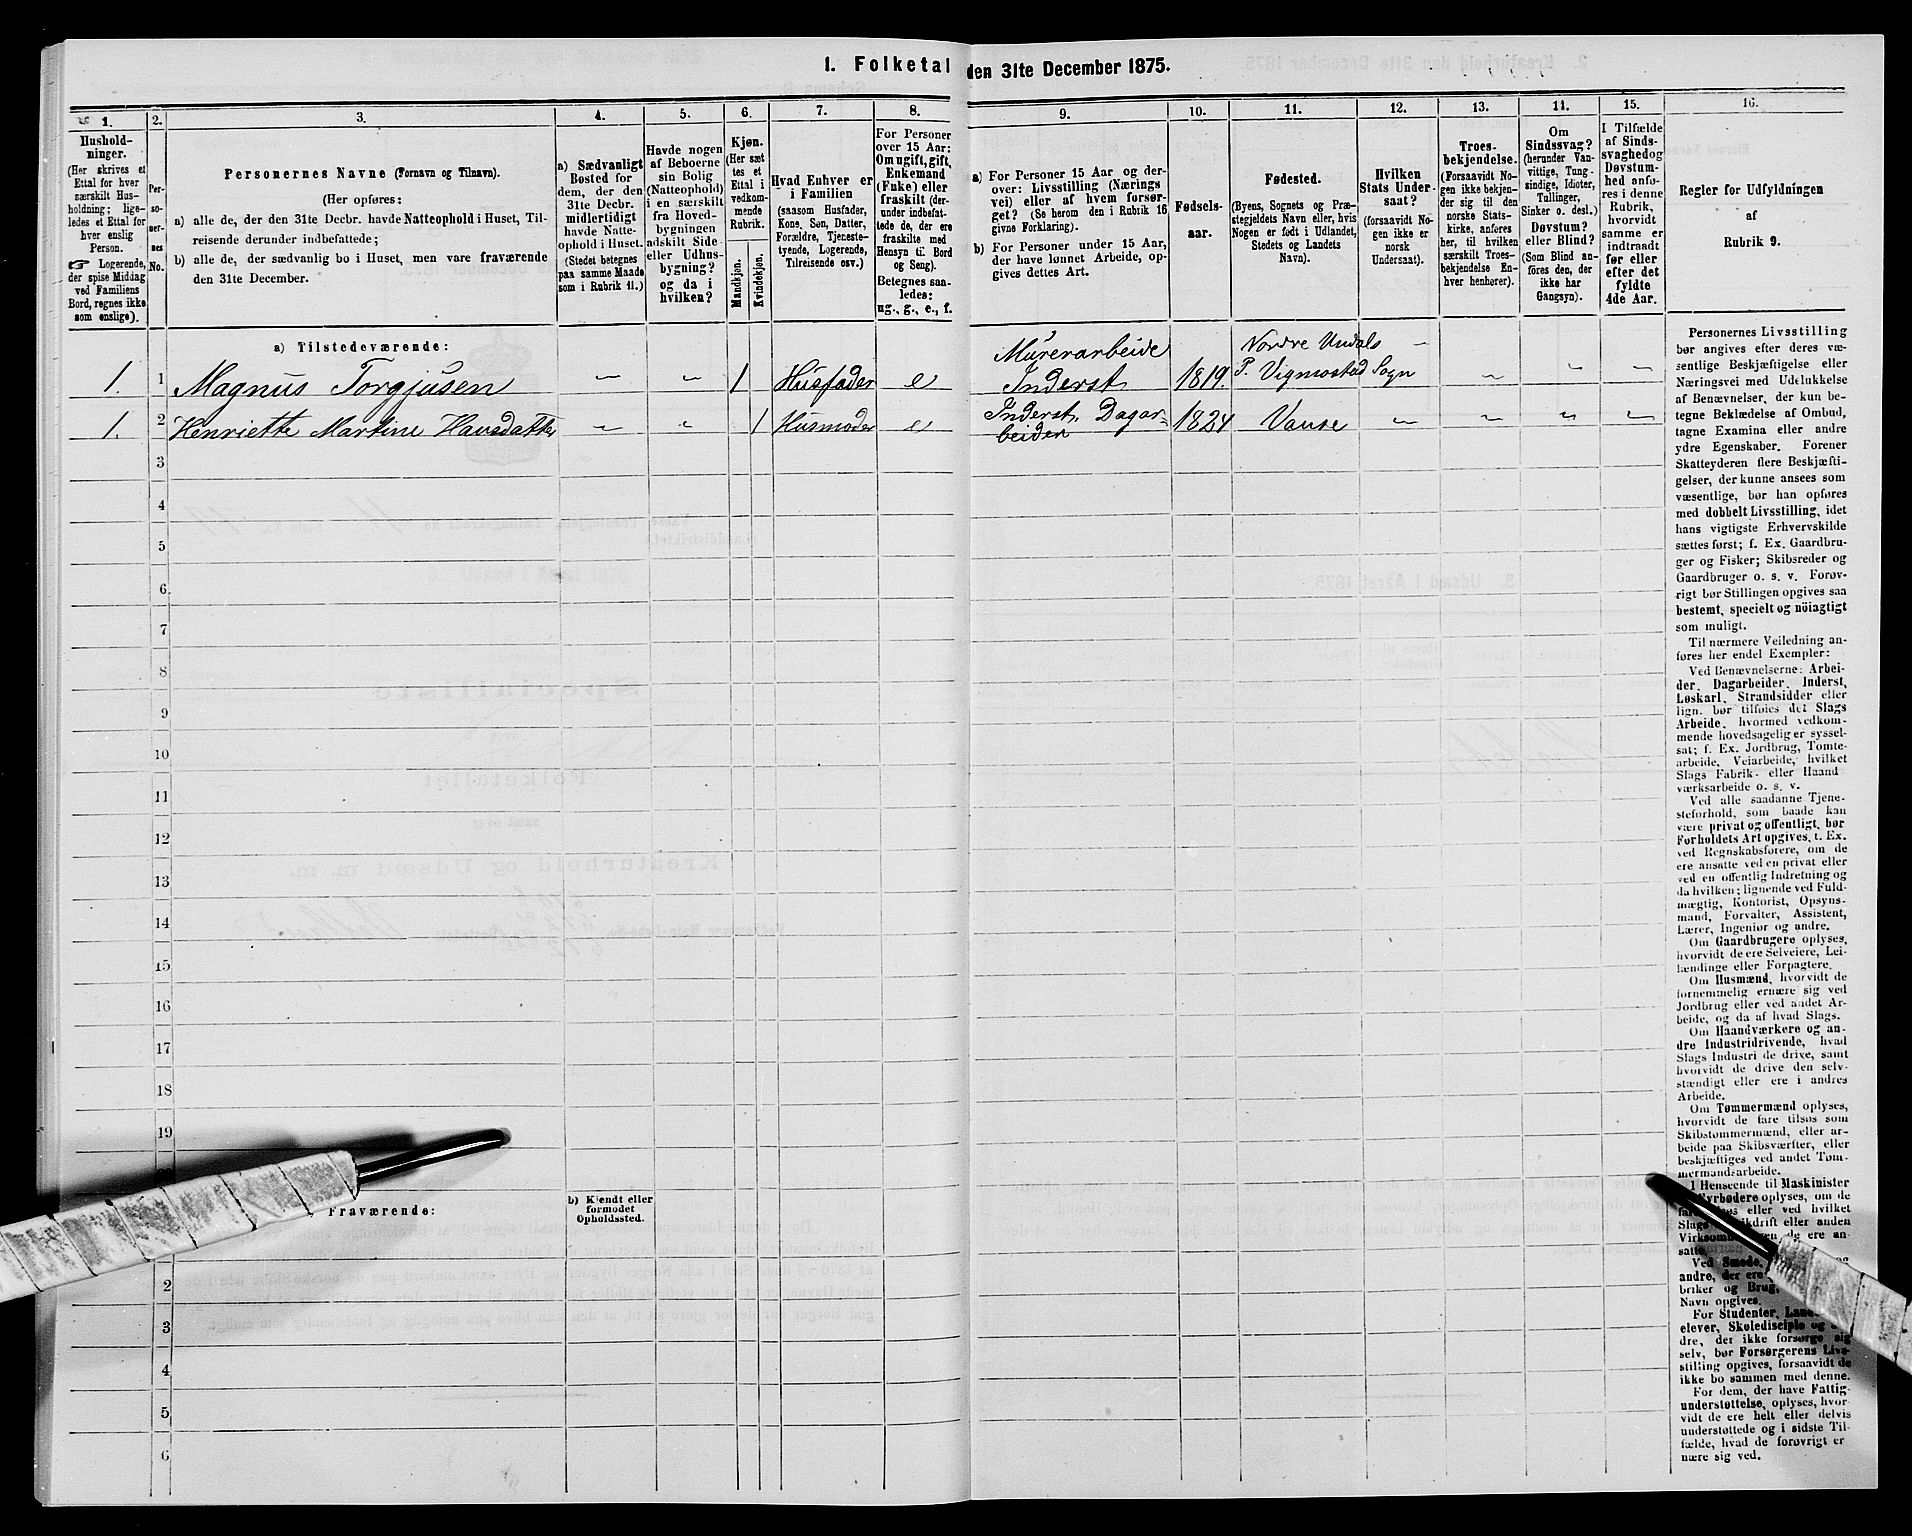 1. Folketal den 31te December 1875.
1.
2.
3.
4.
5.
6.
7.
8.
9.
10.
11.
12.
13.
14.
15.
16.
Hushold-
ninger.
(Her skrives et
Ettal for hver
særskilt Hus-
holdning; lige-
ledes et Ettal for
hver enslig
Person.
☞ Logerende,
der spise Middag
ved Familiens
Bord, regnes ikke
som enslige).
Per-
so-
ner-
nes
No.
Personernes Navne (Fornavn og Tilnavn).
(Her opføres:
a) alle de, der den 31te Decbr. havde Natteophold i Huset, Til-
reisende derunder indbefattede;
b) alle de, der sædvanlig bo i Huset, men vare fraværende
den 31te December.
a) Sædvanligt
Bosted for
dem, der den
31te Decbr.
midlertidigt
havde Natte-
ophold i Huset.
(Stedet betegnes
paa samme Maade
som i Rubrik 11.)
Havde nogen
af Beboerne
sin Bolig
(Natteophold)
i en særskilt
fra Hoved-
bygningen
adskilt Side-
eller Udhus-
bygning?
og da i
hvilken?
Kjøn.
(Her sæt
tes et
Ettal i
vedkom-
mende
Rubrik.
Mandkjøn.
Kvindekjøn.
Hvad Enhver er
i Familien
(saasom Husfader,
Kone, Søn, Datter,
Forældre, Tjeneste-
tyende, Logerende,
Tilreisende osv.)
For Personer
over 15 Aar:
Om ugift, gift,
Enkemand
(Enke) eller
fraskilt (der-
under indbefat-
tede de, der ere
fraskilte med
Hensyn til Bord
og Seng).
Betegnes saa-
ledes:
ug., g., e., f.
a) For Personer 15 Aar og der-
over: Livsstilling (Nærings
vei) eller af hvem forsør-
get? (Se herom den i Rubrik 16
givne Forklaring).
b) For Personer under 15 Aar,
der have lønnet Arbeide, op-
gives dettes Art.
Fødsels-
aar.
Fødested.
(Byens, Sognets og Præ-
stegjeldets Navn eller, hvis
Nogen er født i Udlandet,
Stedets og Landets
Navn).
Hvilken
Stats Under-
saat?
(forsaavidt No-
gen ikke er
norsk
Undersaat).
Troes-
bekjendelse.
(Forsaavidt No-
gen ikke bekjen-
der sig til den
norske Stats-
kirke, anføres
her, til hvilken
særskilt Troes-
bekjendelse En-
hver henhører).
Om
Sindssvag?
(herunder Van-
vittige, Tung-
sindige, Idioter,
Tullinger,
Sinker o. desl.)
Døvstum?
eller Blind?
(Som Blind an-
føres den, der
ikke har
Gangsyn).
I Tilfælde
af Sinds-
svaghed og
Døvstum-
hed anfø-
res i denne
Rubrik,
hvorvidt
samme er
indtraadt
før eller
efter det
fyldte
4de Aar.
Regler for Udfyldningen
af
Rubrik 9.
a) Tilstedeværende:
Murerarbeide
Nordre Undals –
1. 1 Magnus Torgjusen „ „ 1 Husfader e Inderst 1819. P. Vigmostad Sogn „ „ „
1. 2 Henriette Martine Hansdatter „ „ 1 Husmoder e Inderst, Dagar-
beider 1824 Vanse „ „ „ „
3
4
5
6
7
8
9
10
11
12
13
14
15
16
17
18
19
Fraværende:
b) Kjendt eller
formodet
Opholdssted.
2
3
4
5
6
Personernes Livsstilling
bør angives efter deres væ-
sentlige Beskjæftigelse eller
Næringsvei med Udelukkelse
af Benævnelser, der kun be-
tegne Beklædelse af Ombud,
tagne Examina eller andre
ydre Egenskaber. Forener
Skatteyderen flere Beskjæfti-
gelser, der kunne ansees som
væsentlige, bør han opføres
med dobbelt Livsstilling, idet
hans vigtigste Erhvervskilde
sættes først; f. Ex. Gaardbru-
ger og Fisker; Skibsreder og
Gaardbruger o. s. v. Forøv-
rigt bør Stillingen opgives saa
bestemt, specielt og nöiagtigt
som muligt.
Til nærmere Veiledning an-
føres her endel Exempler:
Ved Benævnelserne: Arbei-
der, Dagarbeider, Inderst,
Løskarl, Strandsidder eller
lign. bør tilføies det Slags
Arbeide, hvormed vedkom-
mende hovedsagelig er syssel-
sat; f. Ex. Jordbrug, Tomte-
arbeide, Veiarbeide, hvilket
Slags Fabrik- eller Haand
værksarbeide o. s. v.
Ved alle saadanne Tjene-
steforhold, som baade kan
være privat og offentligt, bør
Forholdets Art opgives, t. Ex.
ved Regnskabsførere, om de
ere ansatte ved en privat eller
ved en offentlig Indretning og
da hvilken; lignende ved Fuld-
mægtig, Kontorist, Opsyns-
mand, Forvalter, Assistent,
Lærer, Ingeniør og andre.
Om Gaardbrugere oplyses,
hvorvidt de ere Selveiere, Lei-
lændinge eller Forpagtere.
Om Husmænd, hvorvidt de
fornemmelig ernære sig ved
Jordbrug eller ved andet Ar-
beide, og da af hvad Slags.
Om Haandværkere og an-
dre Industridrivende, hvad
Slags Industri de drive, samt
hvorvidt de drive den selv-
stændigt eller ere i andres
Arbeide.
Om Tømmermænd oplyses,
hvorvidt de fare tilsøs som
Skibstømmermænd, eller ar-
beide paa Skibsværfter, eller
beskjæftiges ved andet Tøm-
mermandsarbeide.
I Henseende til Maskinister
oplyses, om de
eller ved hvilket
Slags eller anden
de ere an-
satte.
Ved Smede, og
andre, der ere
briker og
Navn opgives.
For Studenter,
elever, Skoledisciple og
dre, der ikke forsørge sig
selv, bør Forsørgerens Livs-
stilling opgives, forsaavidt de
ikke bo sammen med denne.
For dem, der have Fattig-
understøttelse, oplyses, hvor-
vidt de ere helt eller delvis
understøttede og i sidste Til-
fælde, hvad de forøvrigt er
nære sig ved.